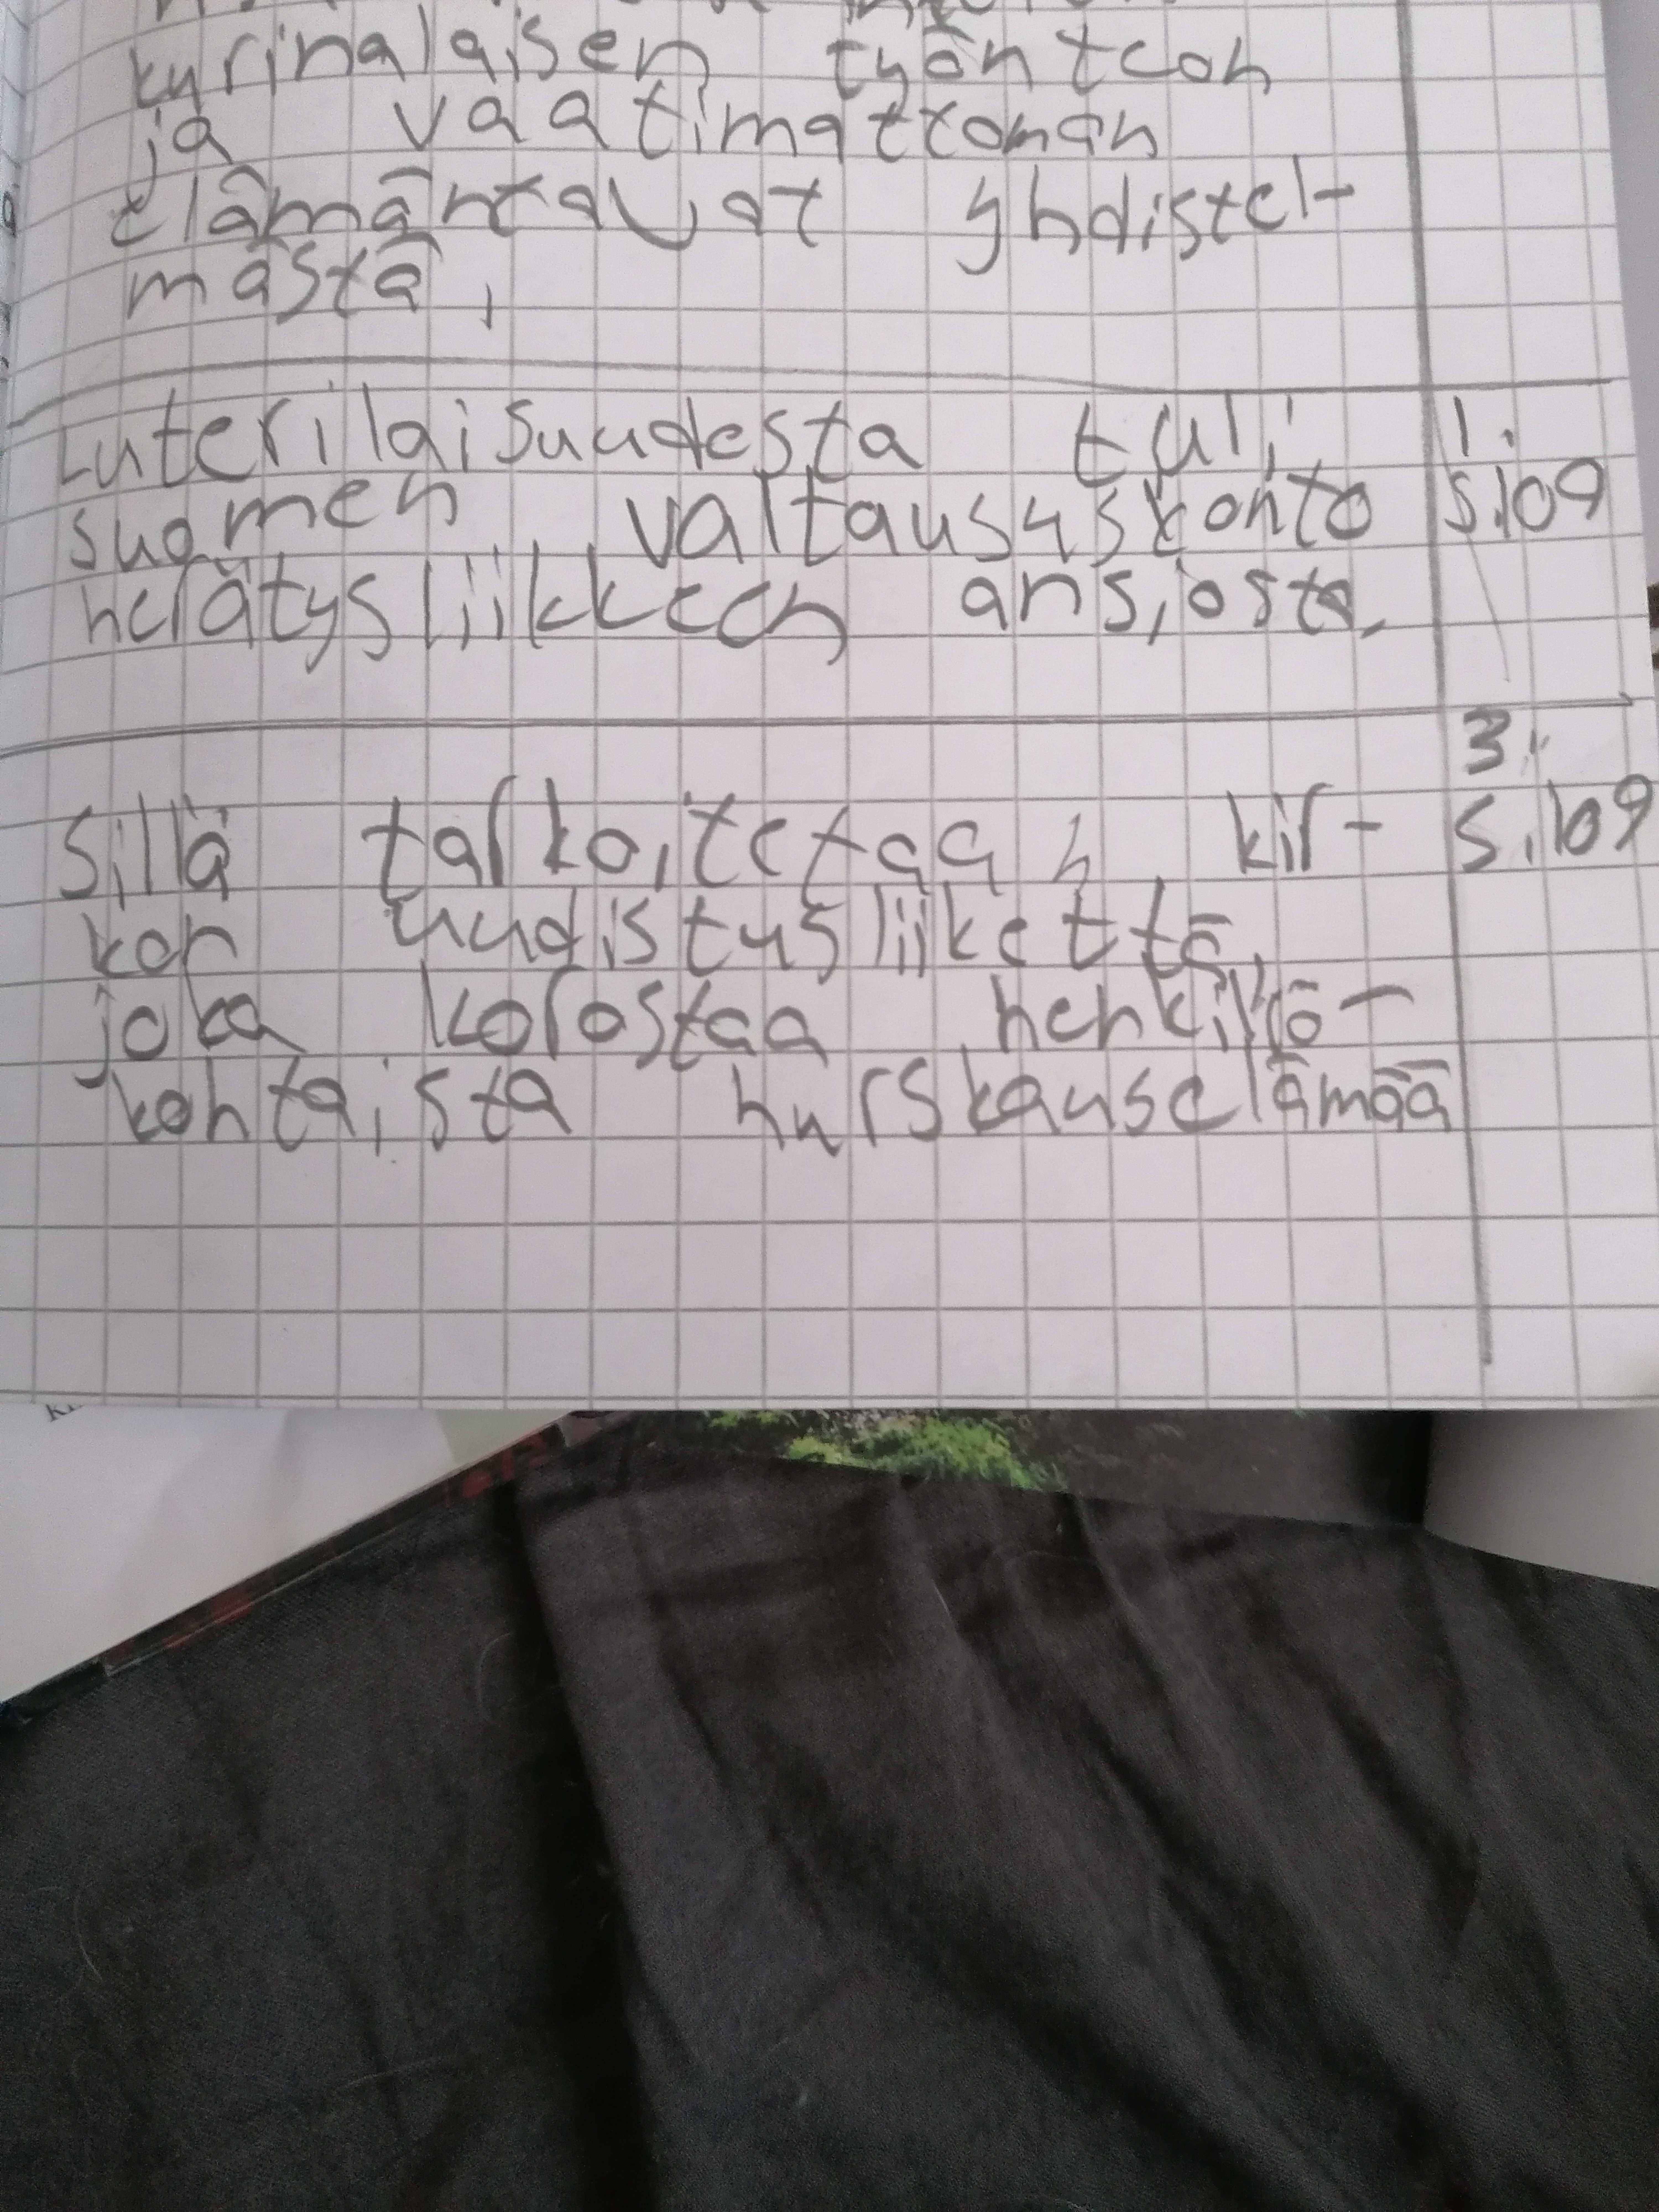 kurinalaisen työn teon
ja vaatimattoman
elämäntavat yhdistel-
mästä,
Luterilaisuudesta tuli 1.
suomen valtaususkonto s.109
herätysliikkeen ansiosta.
3.
Sillä tarkoitetaan kir- s.109
kon uudistusliikettä,
joka korostaa henkilkö-
kohtaista hurskauselämää